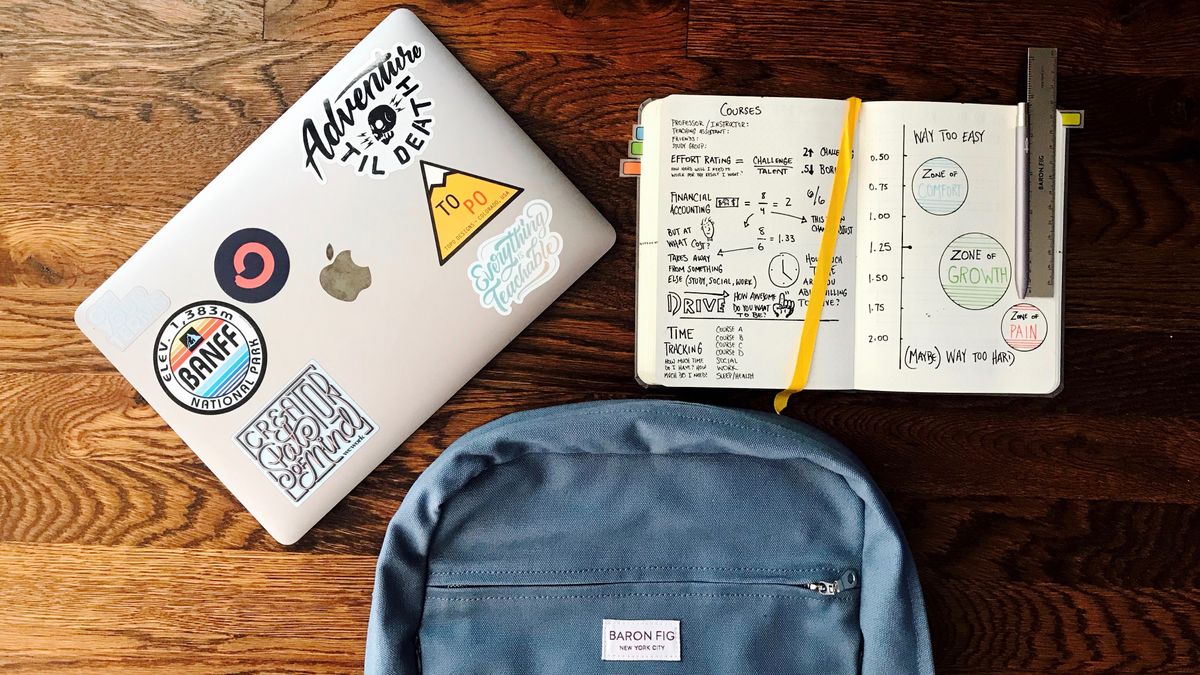 Adventure
TIL DEATH
TO PO
TOPO DESIGNS • COLORADO, USA
Everything
is
Teachable
ELEV. 1,383m
BANFF
NATIONAL PARK
CREATOR
Is a State
of Mind
wework
COURSES
PROFESSOR/INSTRUCTOR:
TEACHING ASSISTANT:
FRIENDS:
STUDY GROUP:
EFFORT RATING = CHALLENGE
TALENT
HOW HARD WILL I NEED TO
WORK FOR THE RESULT I WANT?
2↑
.5↓
FINANCIAL
ACCOUNTING
= 8
4 = 2
6/6
BUT AT
WHAT COST?
8
6 = 1.33
THIS
TAKES AWAY
FROM SOMETHING
ELSE (STUDY, SOCIAL, WORK)
DRIVE
HOW AWESOME
DO YOU WANT
TO BE?
TIME
TRACKING
HOW MUCH TIME
DO I HAVE? HOW
MUCH DO I NEED?
COURSE A
COURSE B
COURSE C
COURSE D
SOCIAL
WORK
SLEEP/HEALTH
WAY TOO EASY
0.50
0.75
1.00
1.25
1.50
1.75
2.00
ZONE OF
COMFORT
ZONE OF
GROWTH
ZONE OF
PAIN
(MAYBE) WAY TOO HARD
BARON FIG
BARON FIG
NEW YORK CITY